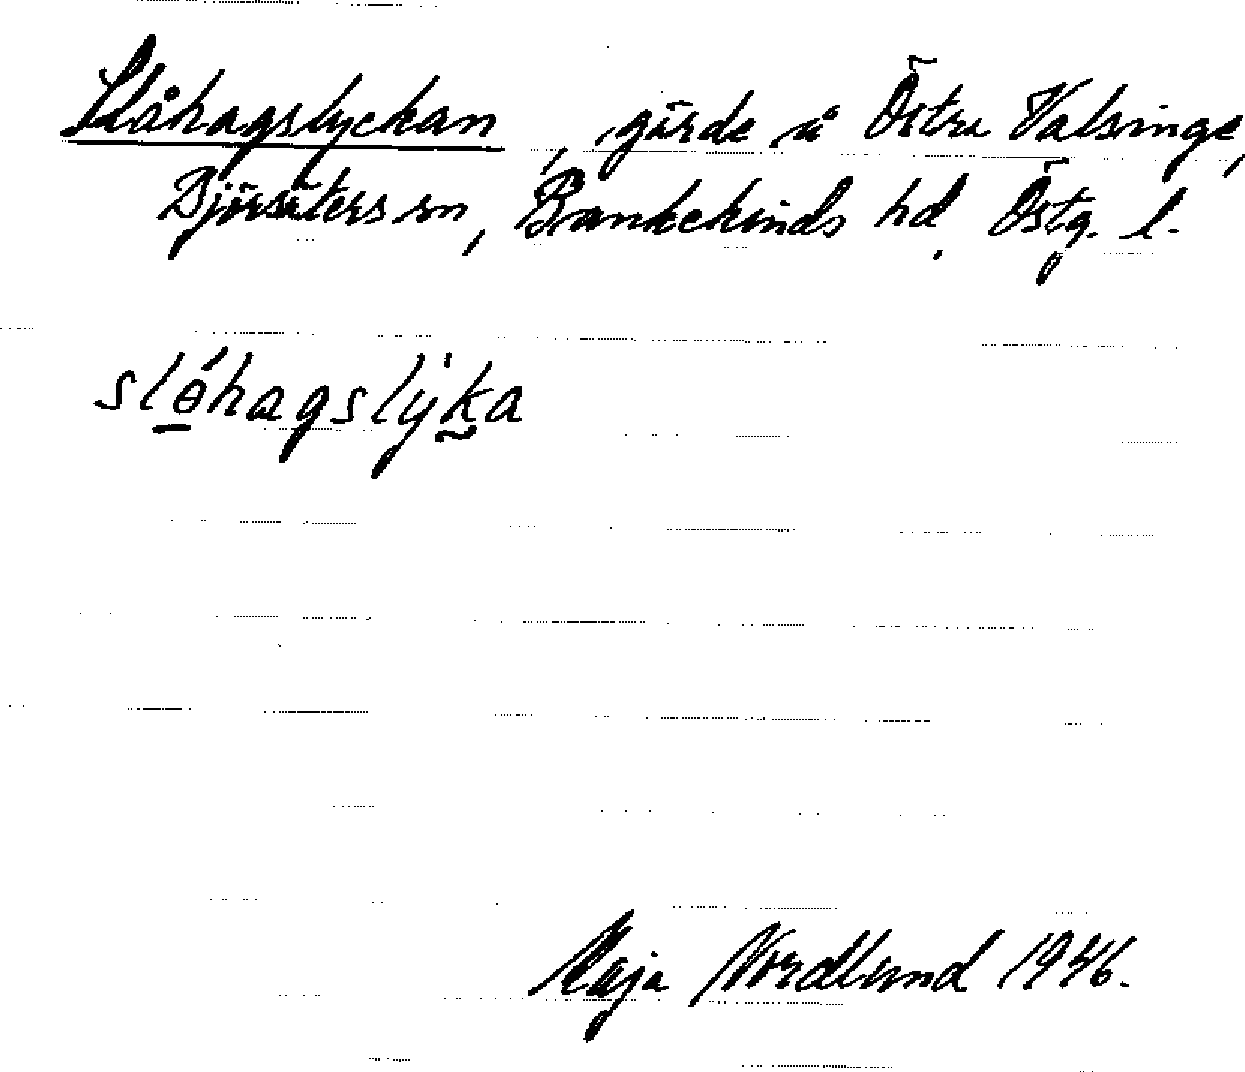 Slåhagslyckan, gärde å Östra Valsinge,
Björsäters sn, Bankekinds hd. Östg. l.
slóhagslỳka
Maja Nordlund 1946.